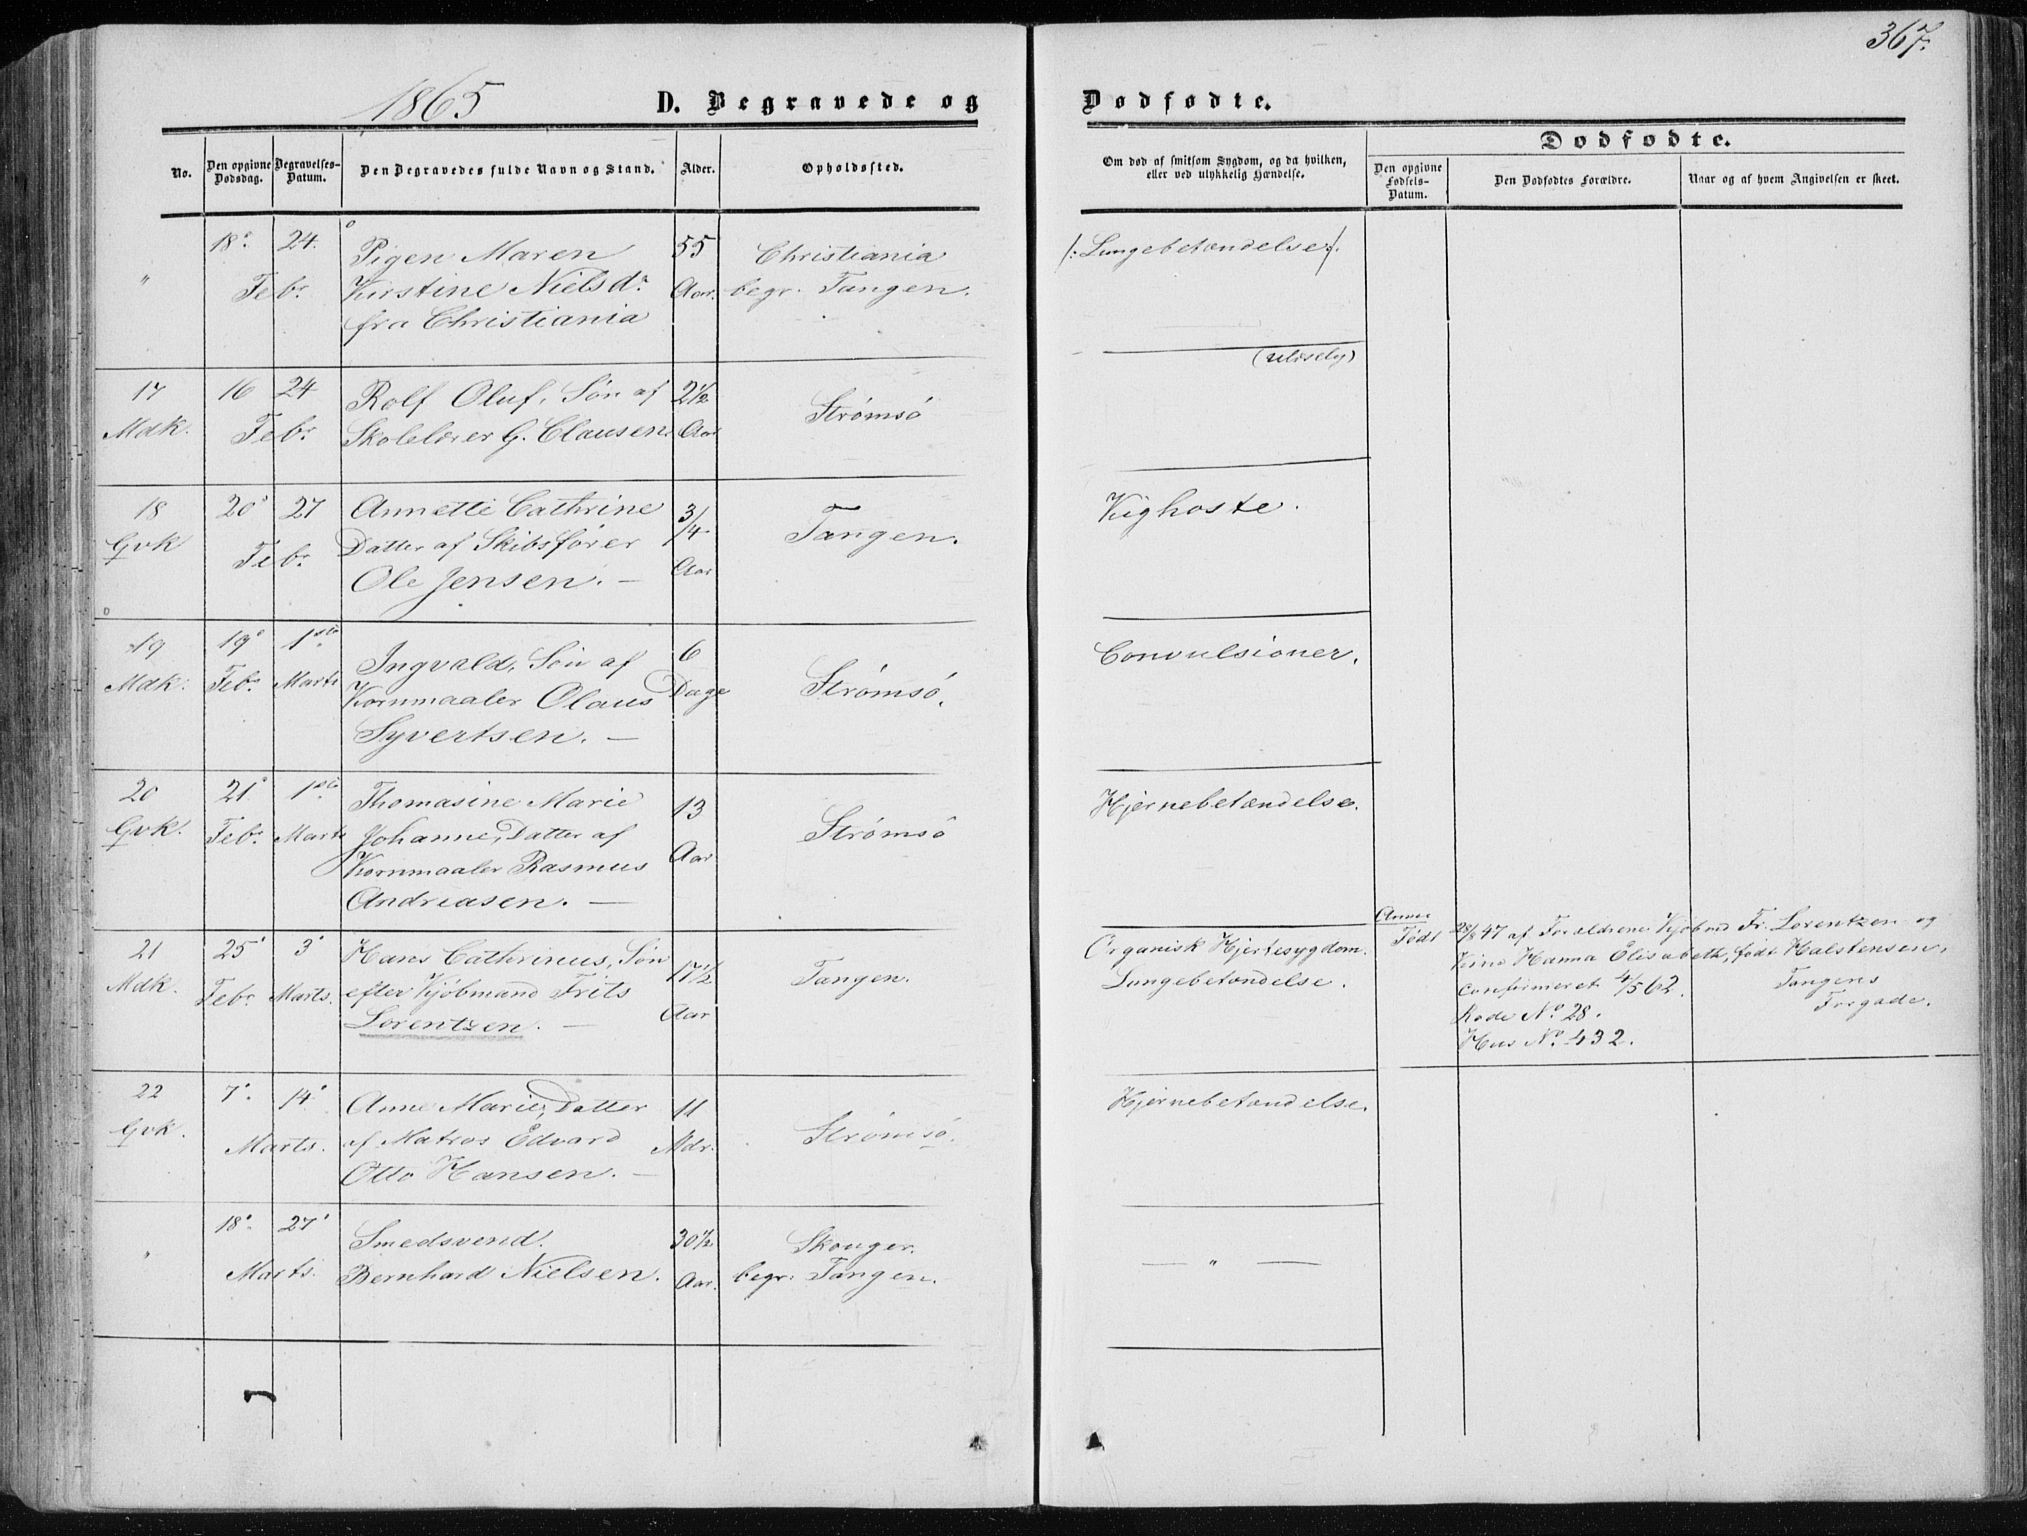 367.
1865
D. Begravede og Dødfødte.
Dødfødte.
No.
Den opgivne Dødsdag.
Begravelses-Datum.
Den Begravedes fulde Navn og Stand.
Alder.
Opholdssted.
Om død af smitsom Sygdom, og da hvilken,
eller ved ulykkelig Hændelse.
Den opgivne Fødsels-Datum.
Den Dødfødtes Forældre.
Naar og af hvem Angivelsen er skeet.
" 18. 24. Pigen Maren 55 Christiania /: Lungebetændelse :/.
Febr. Kirstine Nielsdr. Aar. begr. Tangen.
fra Christiania
17 16 24 Rolf Oluf, Søn af 2½ Strømsø
Mdk. Febr. Skolelærer G. Clausen. Aar
18 20 27 Annette Cathrine 3/4 Tangen. Kighoste.
Gvk Febr. Datter af Skibsfører
Ole Jensen. — Aar
19 19 1ste Ingvald, Søn af 6 Strømsø. Convulsioner.
Mdk. Febr. Marts Kornmaaler Olaus Dage
Syvertsen. —
20 21 1ste Thomasine Marie 13 Strømsø Hjernebetændelse.
Gvk. Febr. Marts Johanne, Datter af
Kornmaaler Rasmus Aar
Andreasen. —
21 25 3 Hans Cathrinus, Søn 17½ Tangen. Organisk Hjertesygdom.
Mdk. Febr. Marts. efter Kjøbmand Frits Lungebetændelse.
Lorentzen. — Aar
Født 28/8 47 af Forældrene Kjøbmd Fr. Lorentzen og
Hanna Elisabeth, født Halstensen,
Confirmeret 4/5 62. Tangens
Rode No. 28. Forgade.
Hus No. 432.
22 7. 14 Anne Marie, Datter 11 Strømsø. Hjernebetændelse.
Gvk. Marts. af Matros Edvard Mdr.
Otto Hansen. —
" 18. 27 Smedsvend. 30½ Skouger. — " —
Marts. Bernhard Nielsen. Aar. begr. Tangen.